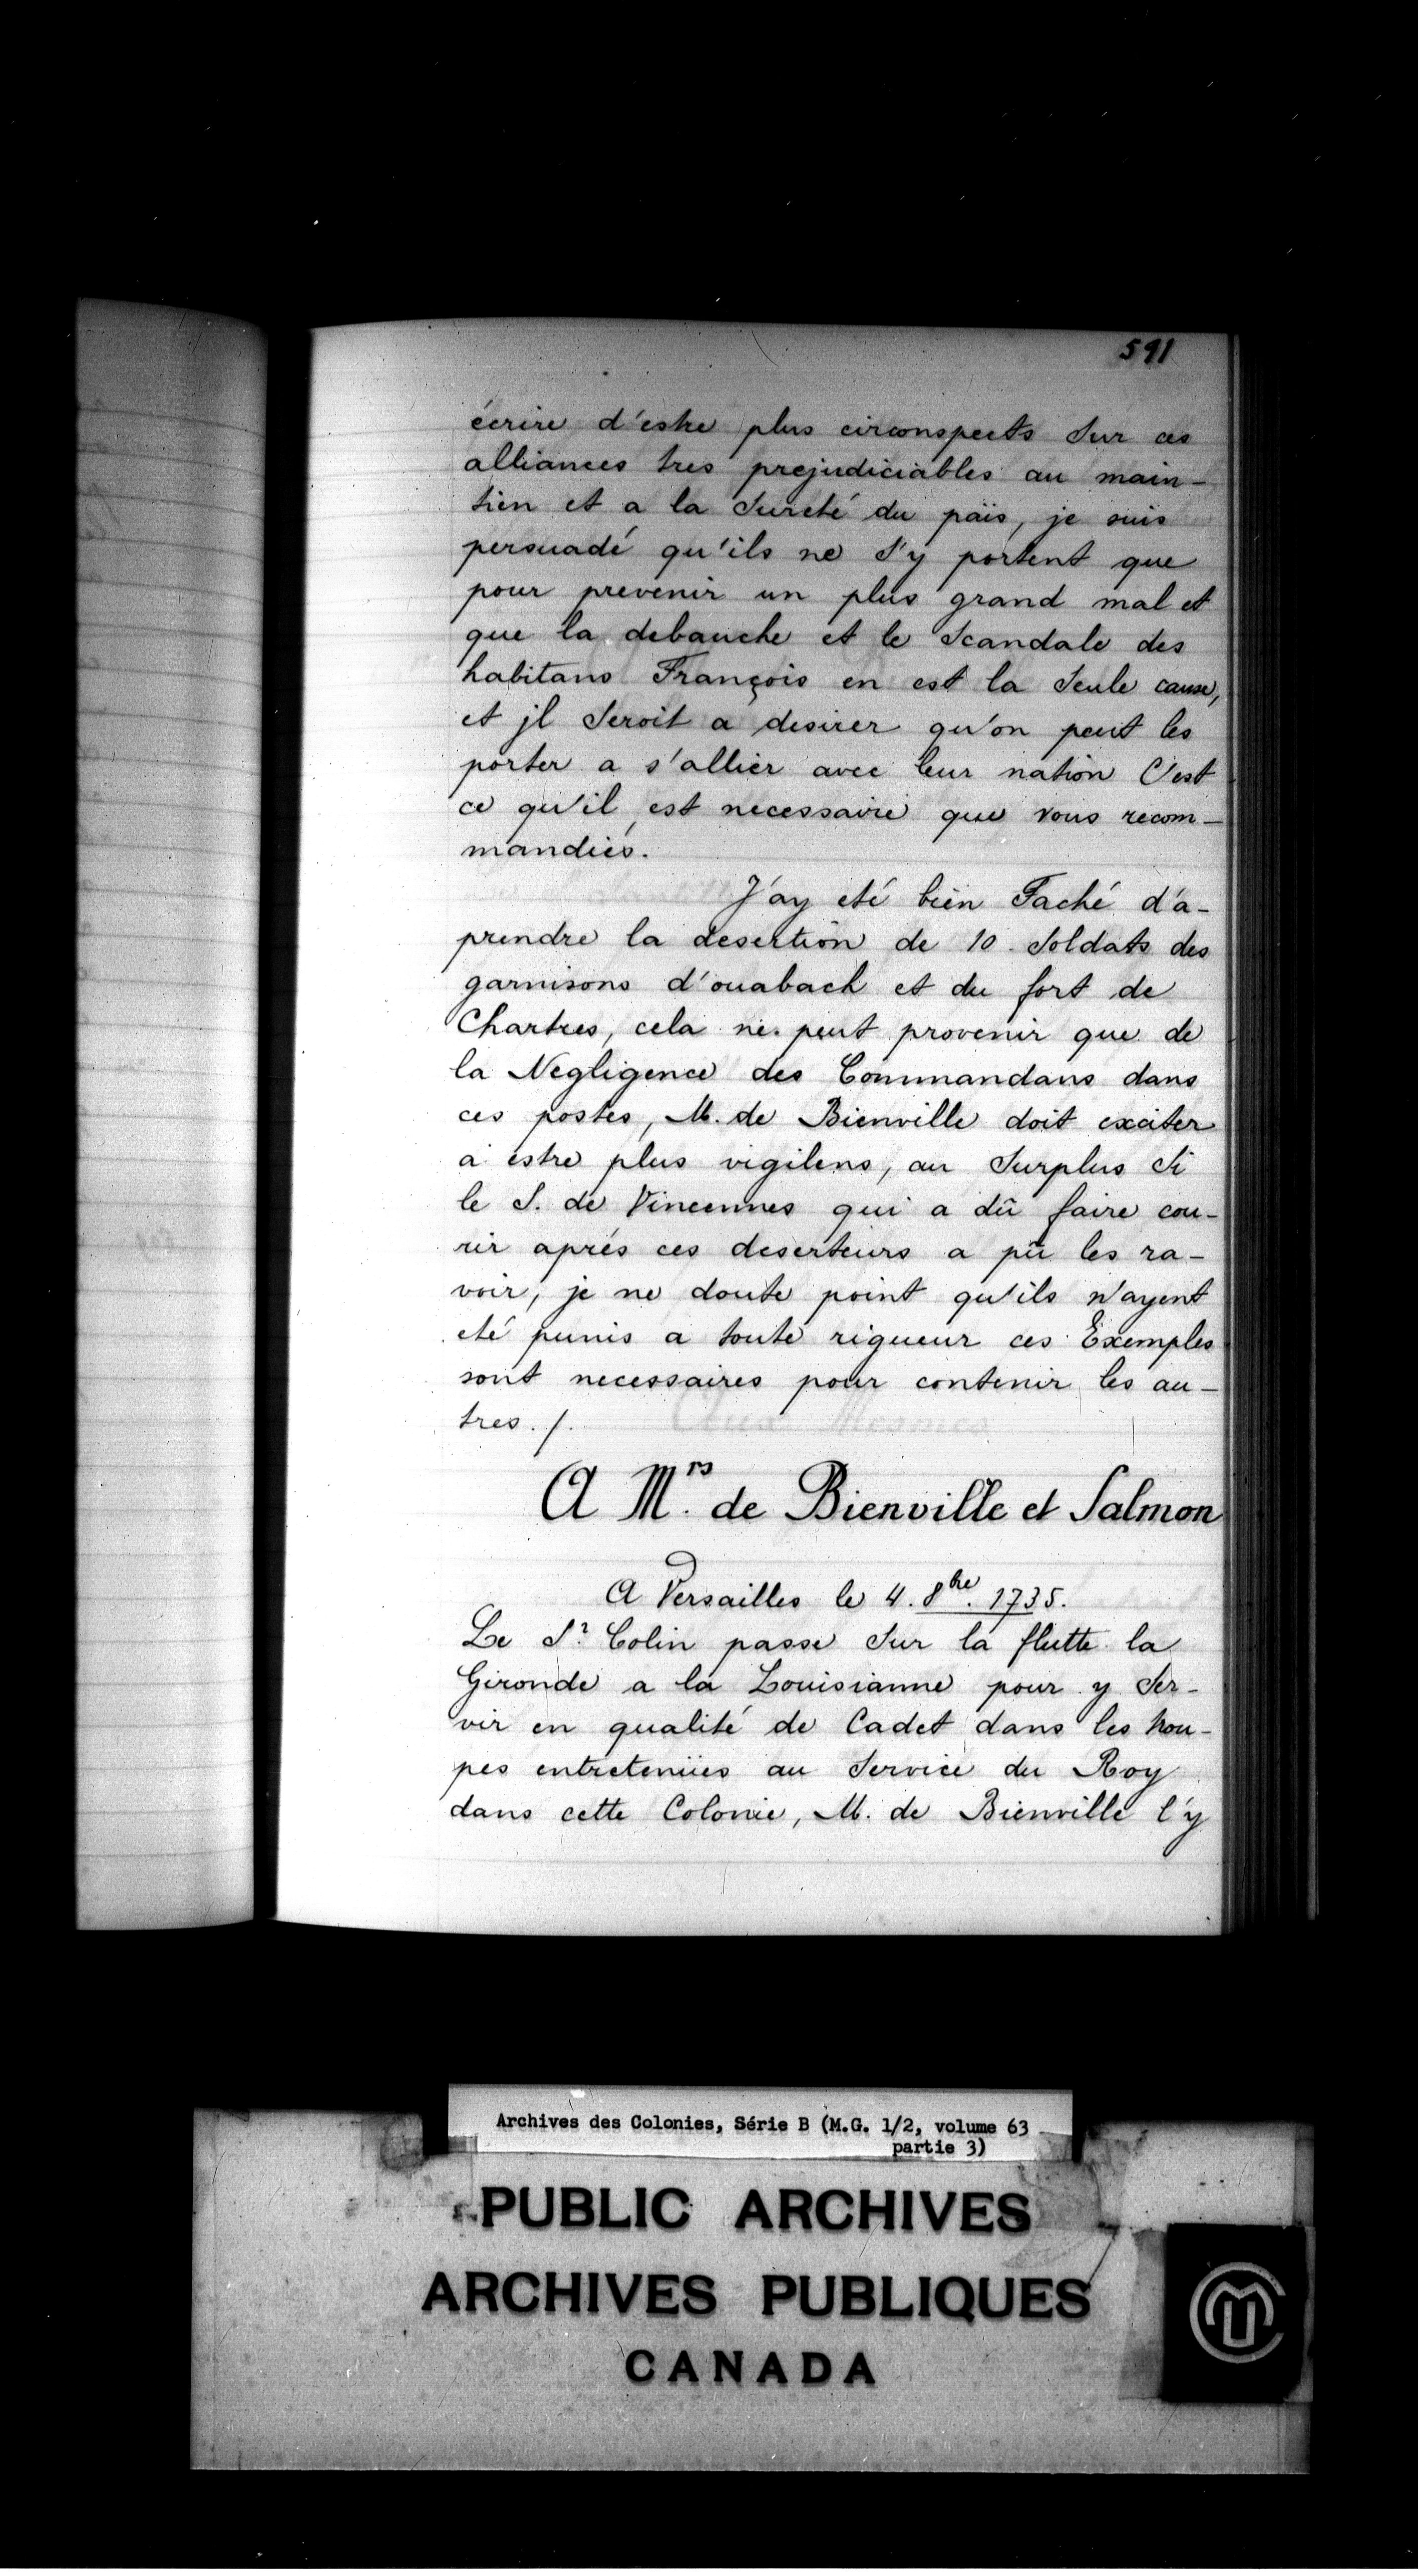 591
écrire d'estre plus circonspects sur ces
alliances tres prejudiciables au main-
tien et a la sureté du païs, je suis
persuadé qu'ils ne s'y portent que
pour prevenir un plus grand mal et
que la debauche et le scandale des
habitans François en est la seule cause,
et jl seroit a desirer qu'on peut les
porter a s'allier avec leur nation C'est
ce qu'il est necessaire que vous recom-
mandiés.
J'ay eté bien Faché d'a-
prendre la desertion de 10. soldats des
garnisons d'ouabach et du fort de
Chartres, cela ne peut provenir que de
la Negligence des Commandans dans
ces postes, M. de Bienville doit exciter
a estre plus vigilens, au surplus si
le S. de Vincennes qui a dû faire cou-
rir aprés ces deserteurs a pû les ra-
voir, je ne doute point qu'ils n'ayent
eté punis a toute rigueur ces Exemples
sont necessaires pour contenir les au-
tres./.
A M.rs de Bienville et Salmon
A Versailles le 4. 8bre. 1735.
Le S.r Colin passe sur la flutte la
Gironde a la Louisianne pour y ser-
vir en qualité de Cadet dans les trou-
pes entretenües au service du Roy
dans cette Colonie, M. de Bienville l'y
Archives des Colonies, Série B (M.G. 1/2, volume 63
partie 3)
PUBLIC ARCHIVES
ARCHIVES PUBLIQUES
CANADA